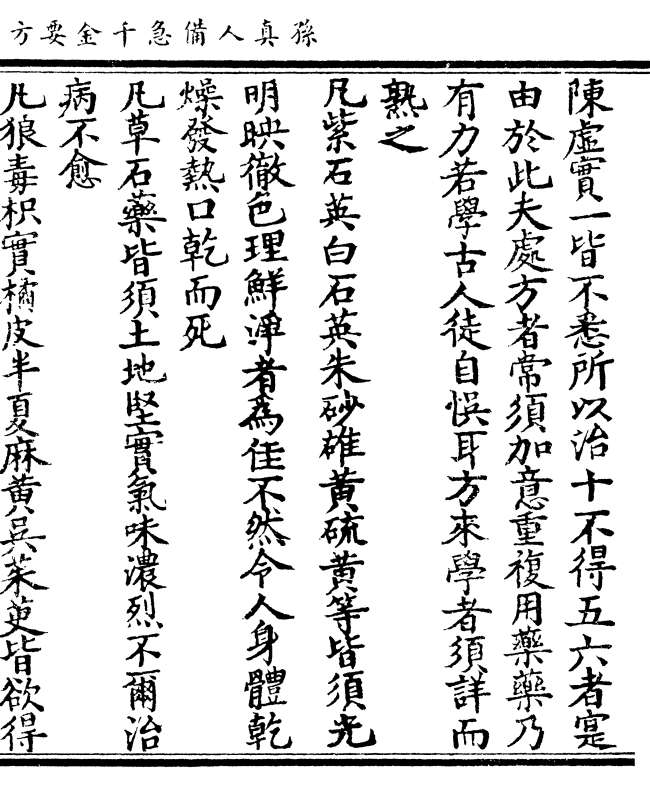 孫真人備急千金要方
陳虛實一皆不悉所以治十不得五六者寔
由於此夫處方者常須加意重複用藥藥乃
有力若學古人徒自悞耳方來學者須詳而
熟之
凡紫石英白石英朱砂雄黃硫黃等皆須光
明映徹色理鮮淨者為佳不然令人身體乾
燥發熱口乾而死
凡草石藥皆須土地堅實氣味濃烈不爾治
病不愈
凡狼毒枳實橘皮半夏麻黃吳茱萸皆欲得